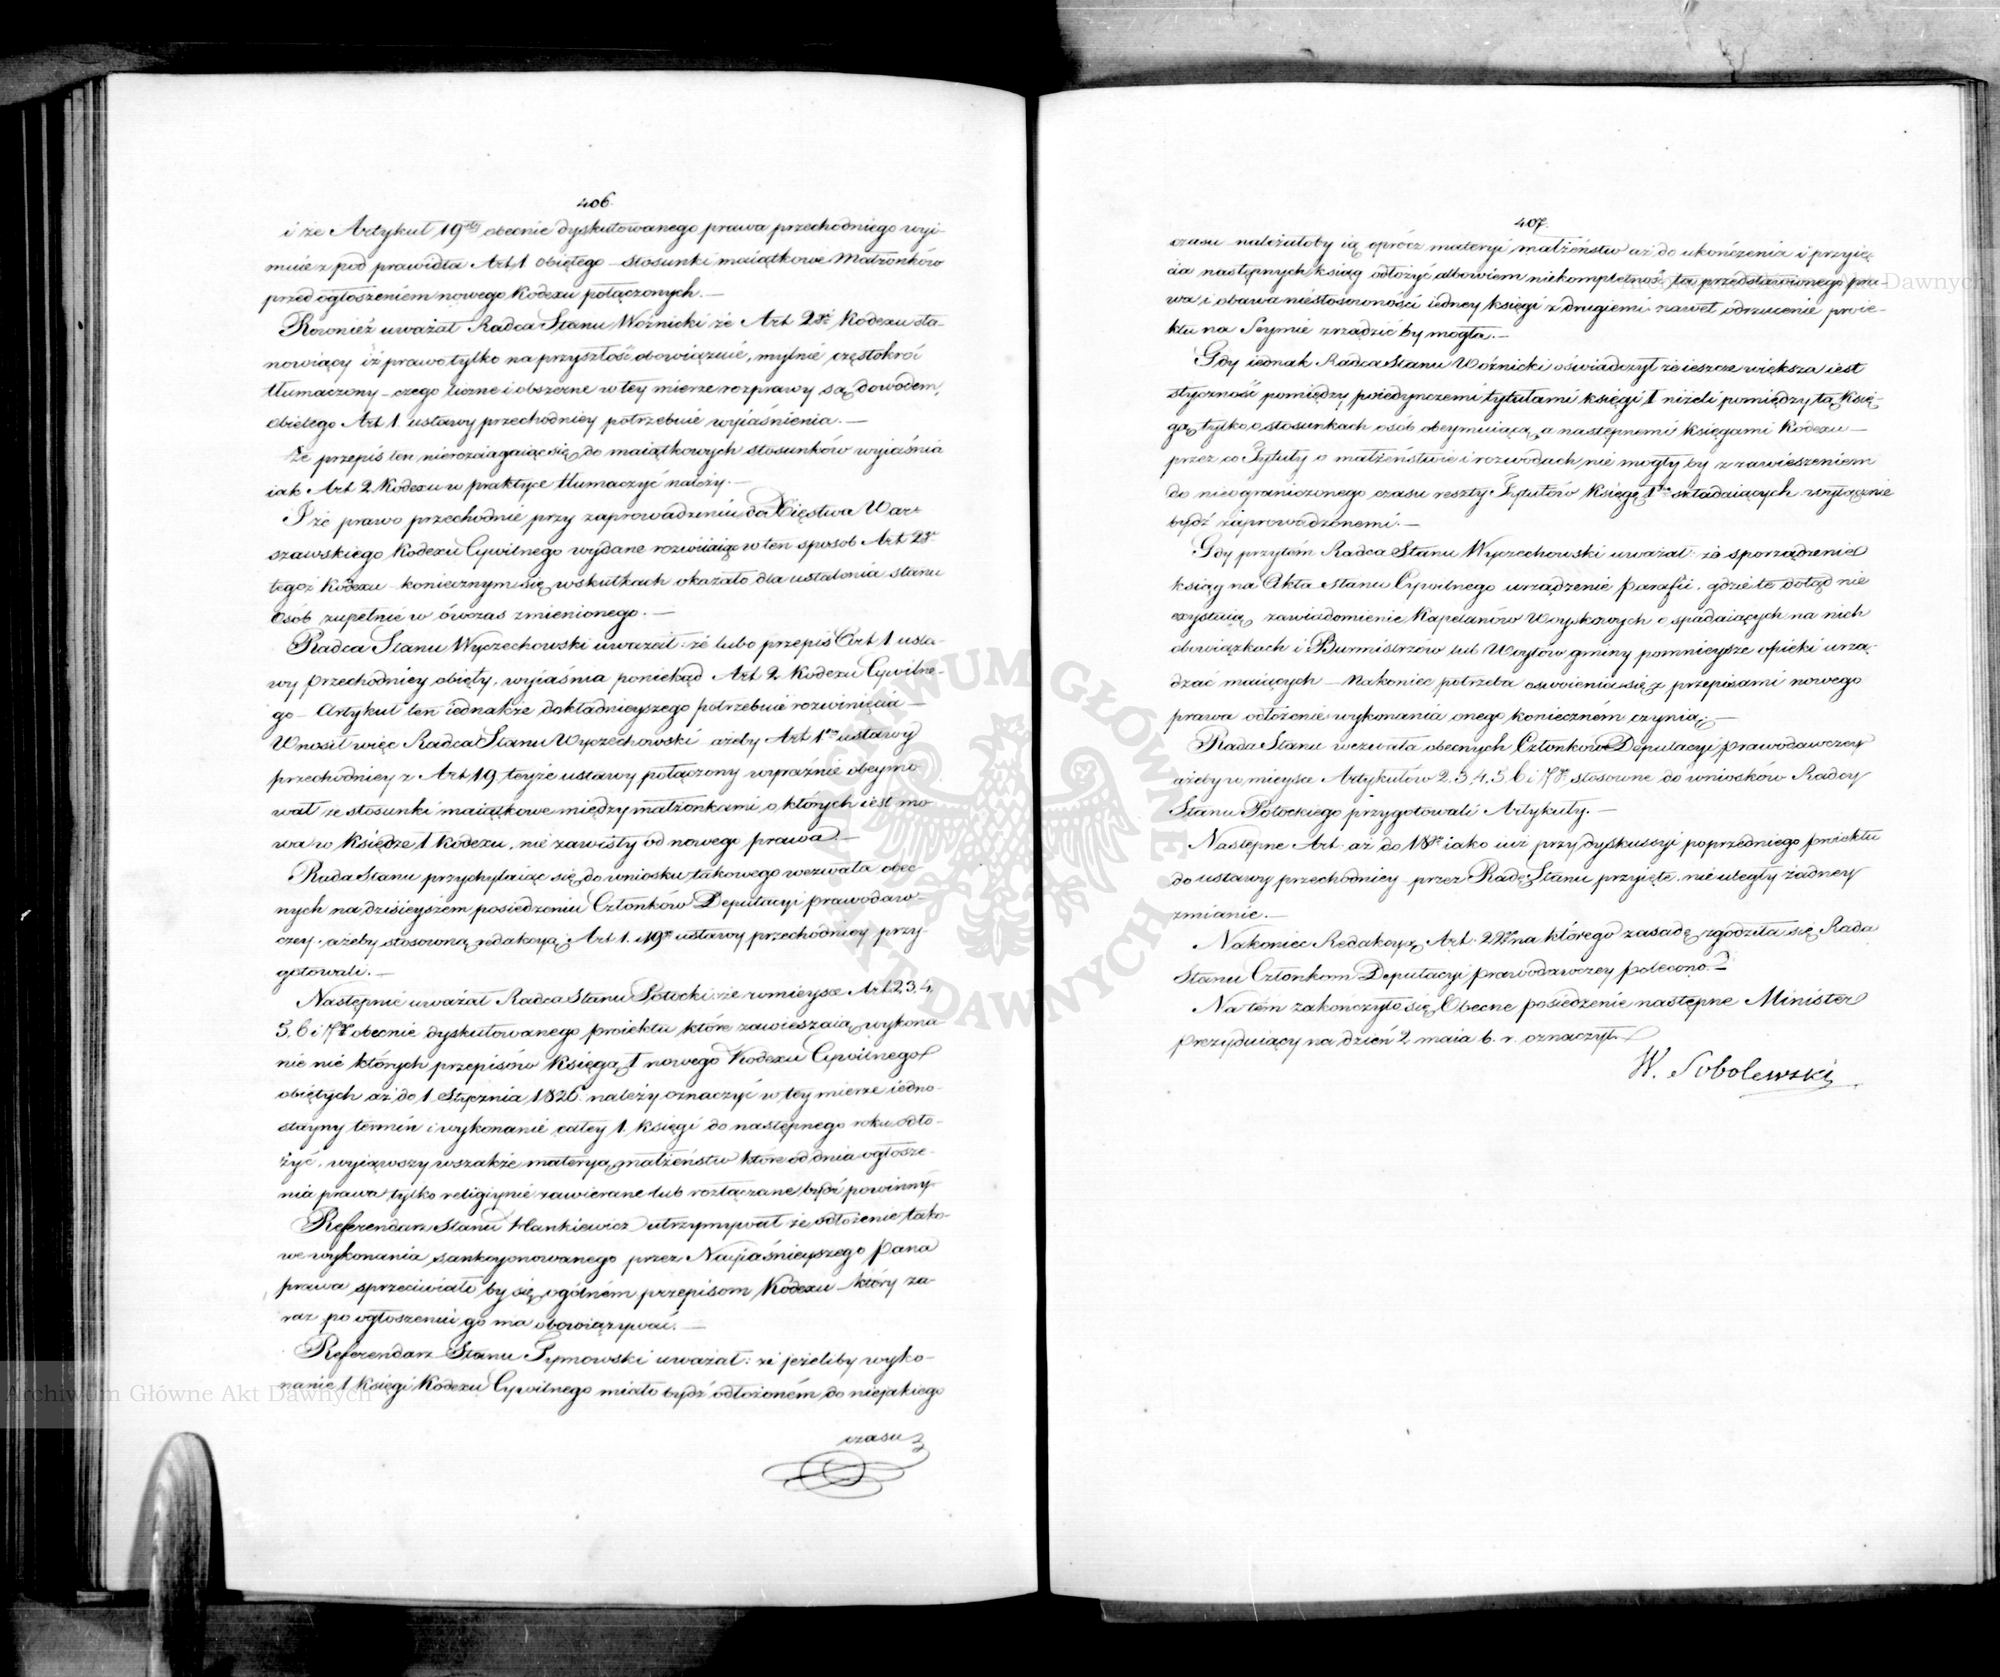 406.
i że Artykuł 19ty obecnie dyskutowanego prawa przechodniego wyi-
muie z pod prawidła Art 1 obiętego – stosunki maiątkowe Małżonków
przed ogłoszeniem nowego Kodexu połączonych. —
Rownież uważał Radca Stanu Woźnicki że Art 2gi Kodexu sta-
nowiący iż prawo tylko na przyszłość obowiązuie, mylnie częstokroć
tłumaczony – czego liczne i obszerne w tey mierze rozprawy są dowodem,
obiętego Art 1. ustawy przechodniey potrzebuie wyjaśnienia. —
Że przepis ten nierozciągaiąc się do maiątkowych stosunków wyiaśnia
iak Art 2 Kodexu w praktyce tłumaczyć należy. —
I że prawo przechodnie przy zaprowadzeniu do Xięstwa War-
szawskiego Kodexu Cywilnego wydane rozwiiaiąc w ten sposob Art 2gi
tegoż Kodexu koniecznym się w skutkach okazało dla ustalenia stanu
osób zupełnie w ówczas zmienionego. —
Radca Stanu Wyczechowski uważał: że lubo przepis Art 1 usta-
wy przechodniey obięty, wyiaśnia poniekąd Art 2 Kodexu Cywilne-
go – Artykuł ten iednakże dokładnieyszego potrzebuie rozwinięcia –
Wnosił więc Radca Stanu Wyczechowski ażeby Art 1szy ustawy
przechodniey z Art 19 teyże ustawy połączony wyraźnie obeymo-
wał że stosunki maiątkowe między małżonkami o których iest mo-
wa w Księdze 1 Kodexu, nie zawisły od nowego prawa —
Rada Stanu przychylaiąc się do wniosku takowego wezwała obec-
nych na dzisieyszem posiedzeniu Członków Deputacyi prawodaw-
czey, ażeby stosowną redakcyą Art 1. i 19go ustawy przechodniey przy-
gotowali. —
Następnie uważał Radca Stanu Potocki: że w mieysce Art 2, 3, 4,
5, 6 i 7go obecnie dyskutowanego proiektu które zawieszaią wykona-
nie niektórych przepisów Księgą 1 nowego Kodexu Cywilnego
obiętych aż do 1 Stycznia 1826. należy oznaczyć w tey mierze iedno-
stayny termin i wykonanie całey 1. księgi do następnego roku odło-
żyć, wyiąwszy wszakże materyą małżeństw które od dnia ogłosze-
nia prawa tylko religiynie zawierane lub rozłączane bydź powinny
Referendarz Stanu Hankiewicz utrzymywał że odłożenie tako-
we wykonania sankcyonowanego przez Nayiaśnieyszego Pana
prawa sprzeciwiało by się ogólnem przepisom Kodexu – który za-
raz po ogłoszeniu go ma obowiązywać. —
Referendarz Stanu Tymowski uważał: że jeżeliby wyko-
nanie 1 Księgi Kodexu Cywilnego miało bydź odłożoném do niejakiego
czasu
407.
czasu należałoby ią oprócz materyi małżeństw aż do ukończenia i przyię-
cia następnych ksiąg odłożyć albowiem niekompletność ta przedstawionego pra-
wa i obawa niestosowności iedney księgi z drugiemi nawet odrzucenie proie-
ktu na Seymie zrządzić by mogła. —
Gdy iednak Radca Stanu Woźnicki oświadczył że ieszcze większa iest
styczność pomiędzy poiedynczemi tytułami księgi 1 niżeli pomiędzy tą Księ-
gą tylko o stosunkach osob obeymuiącą a następnemi Księgami Kodexu —
przez co Tytuły o małżeństwie i rozwodach nie mogły by z zawieszeniem
do nieograniczonego czasu reszty Tytułów Księgę 1szą składaiących wyłącznie
bydź zaprowadzonemi. —
Gdy przytém Radca Stanu Wyczechowski uważał: że sporządzenie
ksiąg na Akta Stanu Cywilnego urządzenie parafii, gdzie te dotąd nie
exystuią zawiadomienie Kapelanów Woyskowych o spadaiących na nich
obowiązkach i Burmistrzow lub Woytów gminy pomnieysze opieki urzą-
dzać maiących – nakoniec potrzeba oswoienia się z przepisami nowego
prawa odłożenie wykonania onego konieczném czynią. —
Rada Stanu wezwała obecnych Członków Deputacyi prawodawczey
ażeby w mieysce Artykułów 2. 3, 4, 5, 6 i 7go stosowne do wniosków Radcy
Stanu Potockiego przygotowali Artykuły. —
Następne Art. aż do 18go iako iuż przy dyskussyi poprzedniego proiektu
do ustawy przechodniey przez Radę Stanu przyięte, nie uległy żadney
zmianie. —
Nakoniec Redakcyą Art. 22go na którego zasadę zgodziła się Rada
Stanu Członkom Deputacyi prawodawczey polecono. —
Na tém zakończyło się Obecne posiedzenie następne Minister
Prezyduiący na dzień 2 maia b. r. oznaczył.
W. Sobolewski
ARCHIWUM GŁÓWNE AKT DAWNYCH
Archiwum Główne Akt Dawnych